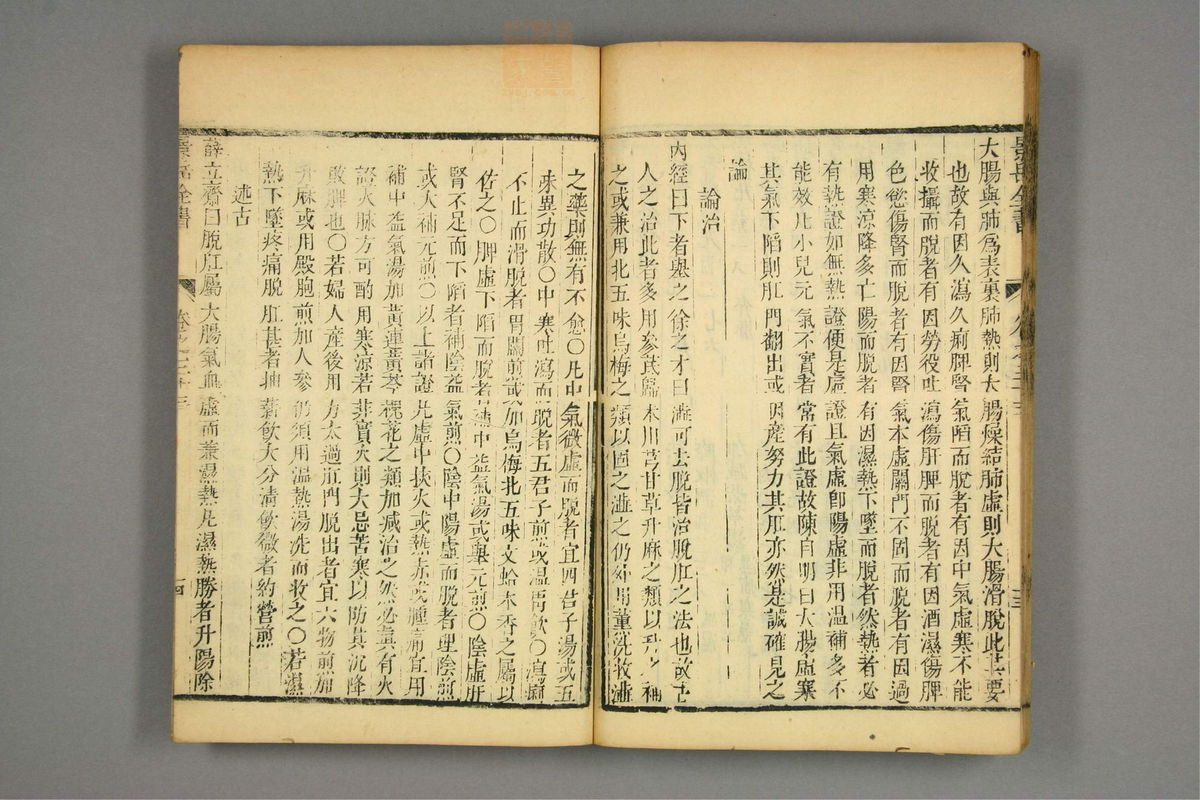 大腸與肺爲表裏肺熱則大腸燥結肺虛則大腸滑脫此其要
也故有因久瀉久痢脾腎氣陷而脫者有因中氣虛寒不能
收攝而脫者有因勞役吐瀉傷肝脾而脫者有因酒濕傷脾
色慾傷腎而脫者有因腎氣本虛關門不固而脫者有因過
用寒涼降多亡陽而脫者有因濕熱下墜而脫者然熱者必
有熱證如無熱證便是虛證且氣虛卽陽虛非用溫補多不
能效凡小兒元氣不實者常有此證故陳自明曰大腸虛寒
其氣下陷則肛門翻出或因產努力其肛亦然是誠確見之
論
論治
內經曰下者舉之徐之才曰澁可去脫皆治脫肛之法也故古
人之治此者多用參芪歸朮川芎甘草升麻之類以升之補
之或兼用北五味烏梅之類以固之澁之仍外用熏洗收澁
之藥則無有不愈〇凡中氣微虛而脫者宜四君子湯或五
味異功散〇中寒吐瀉而脫者五君子煎或溫胃飲〇瀉痢
不止而滑脫者胃關煎或加烏梅北五味文蛤木香之屬以
佐之〇脾虛下陷而脫者補中益氣湯或舉元煎〇陰虛肝
腎不足而下陷者補陰益氣煎〇陰中陽虛而脫者理陰煎
或大補元煎〇以上諸證凡虛中挾火或熱赤或腫痛宜用
補中益氣湯加黃連黃芩槐花之類加減治之然必眞有火
證火脉方可酌用寒涼若非實火則大忌苦寒以防其沉降
敗脾也〇若婦人產後用力太過肛門脫出者宜六物煎加
升麻或用殿胞煎加人參仍須用溫熱湯洗而收之〇若濕
熱下墜疼痛脫肛甚者抽薪飲大分清飲微者約營煎
述古
薛立齋曰脫肛屬大腸氣血虛而兼濕熱凡濕熱勝者升陽除
景岳全書